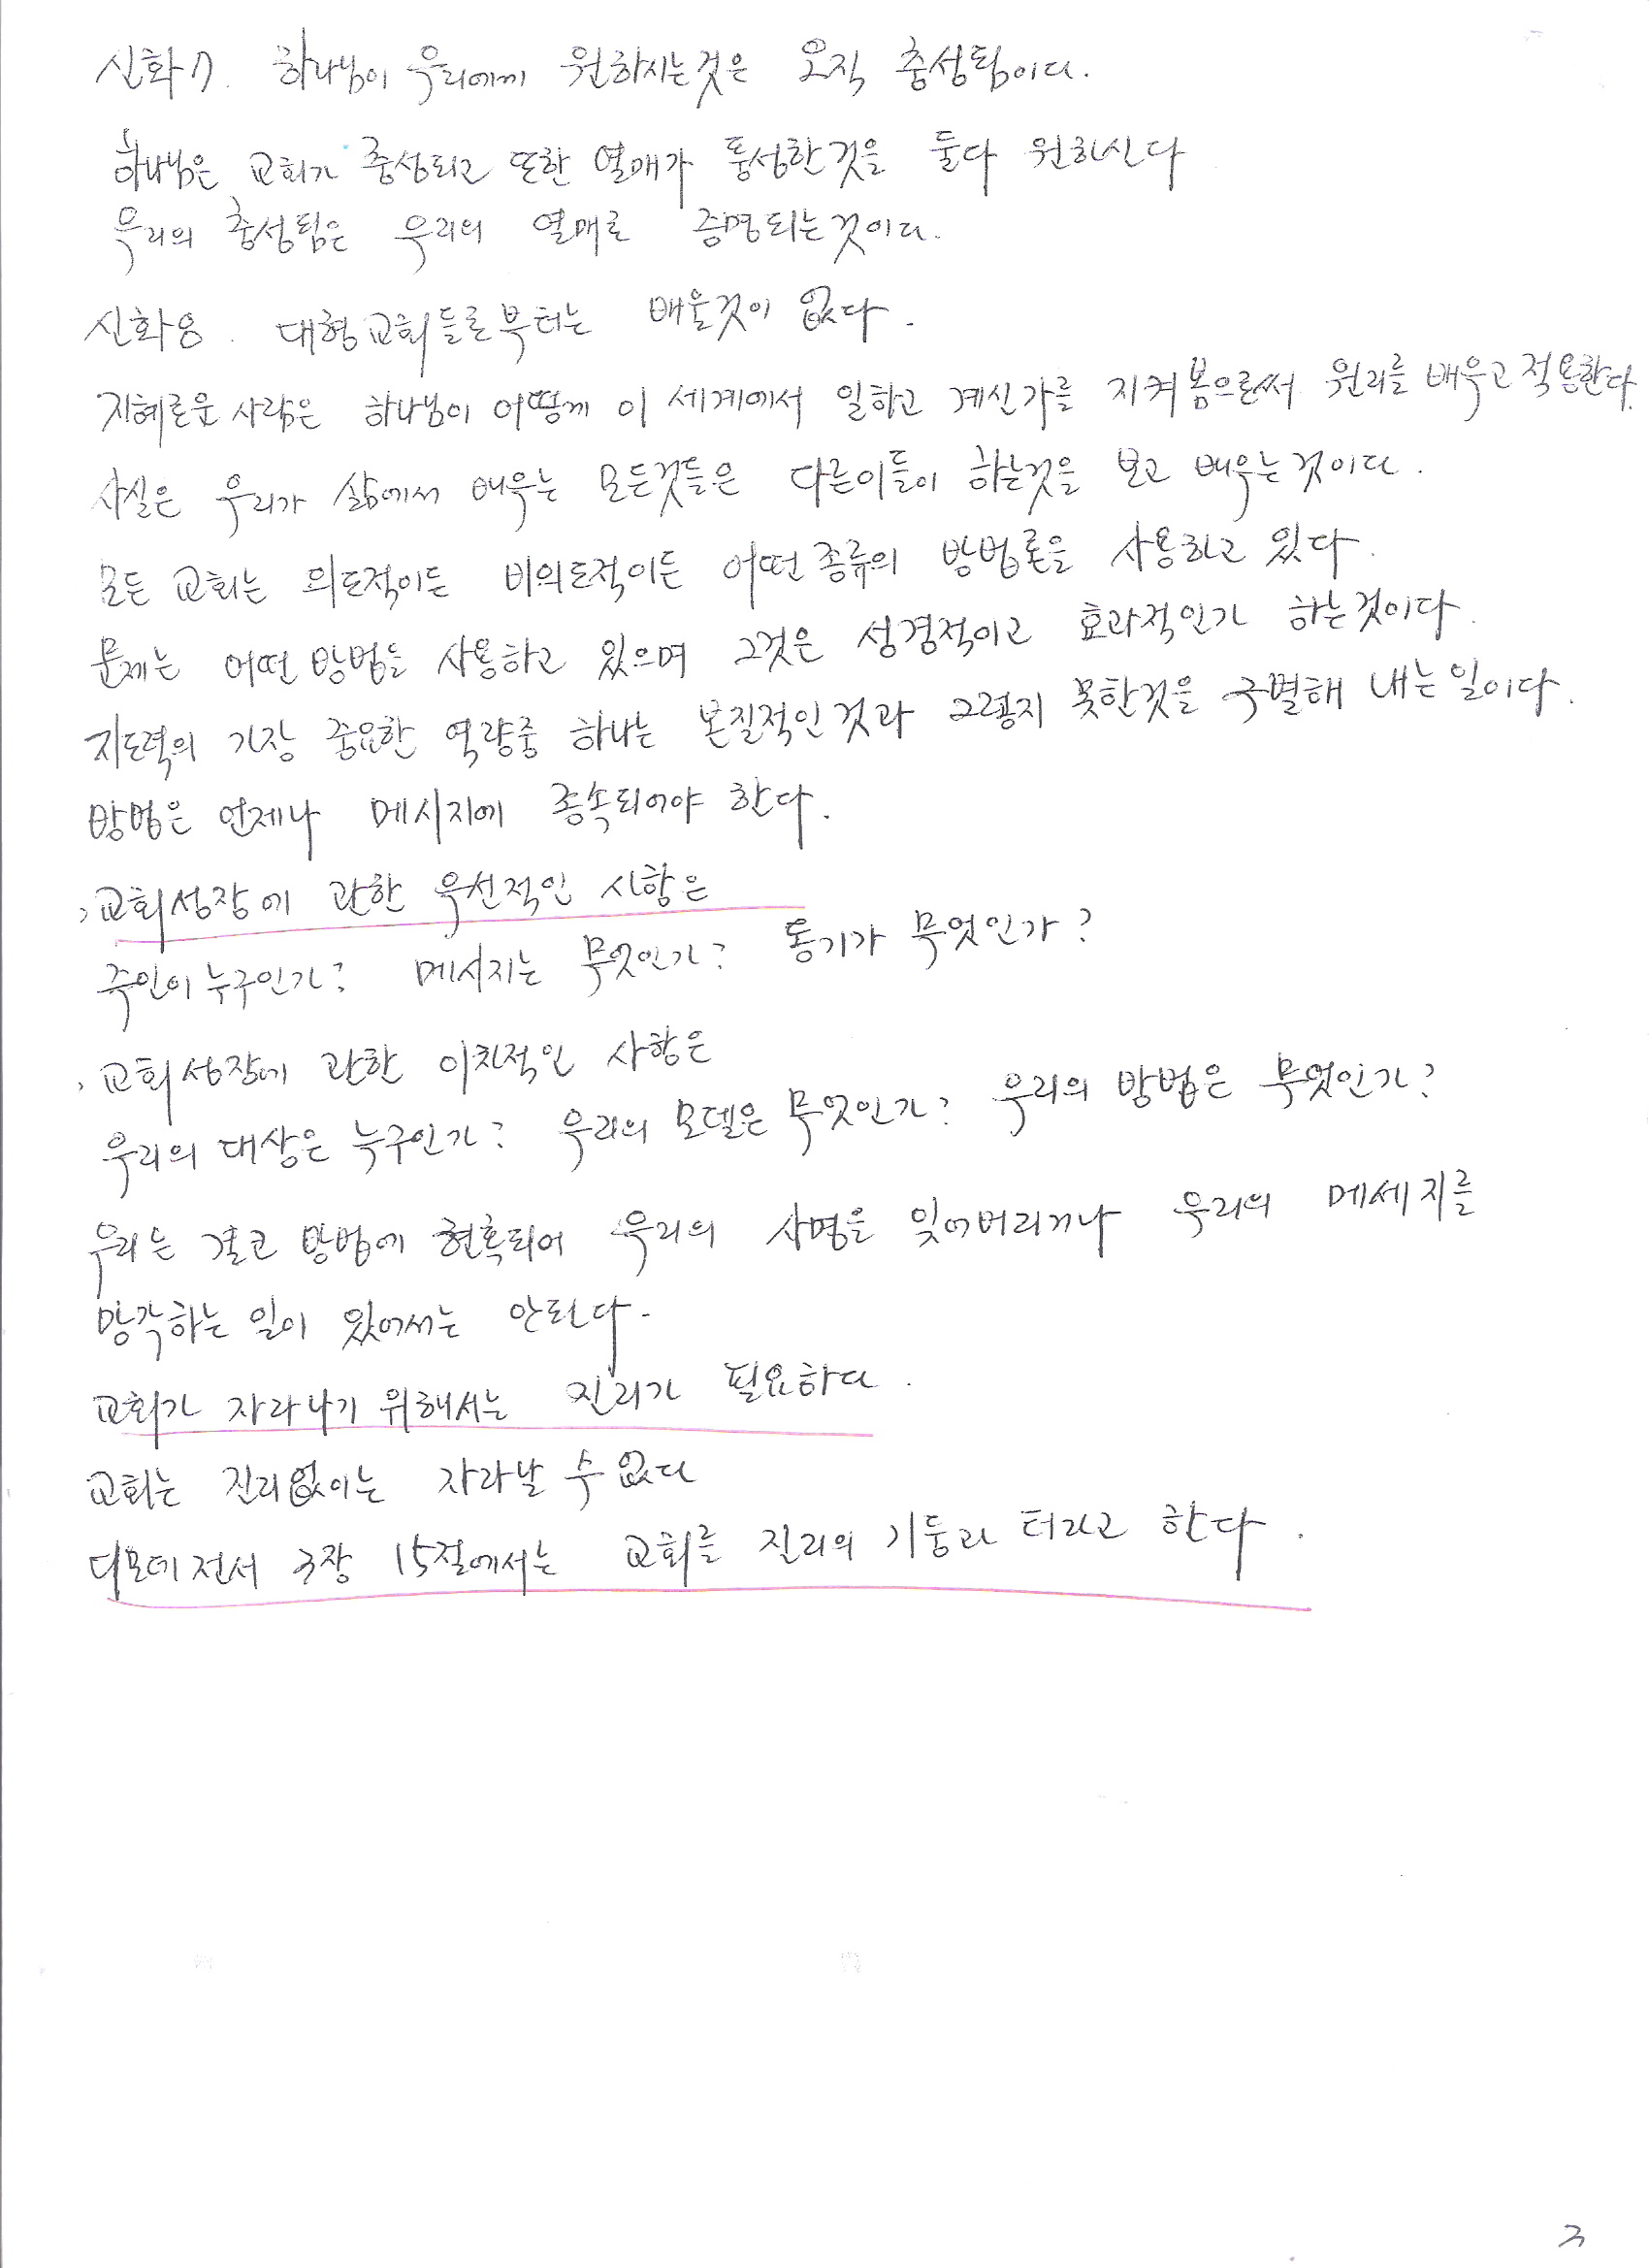 신화7. 하나님이 우리에게 원하시는것은 오직 충성됨이다.
하나님은 교회가 충성되고 또한 열매가 풍성한것을 둘다 원하신다
우리의 충성됨은 우리의 열매로 증명되는것이다.
신화8. 대형교회들로부터는 배울것이 없다.
지혜로운 사람은 하나님이 어떻게 이 세계에서 일하고 계신가를 지켜봄으로써 원리를 배우고 적용한다.
사실은 우리가 삶에서 배우는 모든것들은 다른이들이 하는것을 보고 배우는것이다.
모든 교회는 의도적이든 비의도적이든 어떤 종류의 방법론을 사용하고 있다.
문제는 어떤 방법을 사용하고 있으며 그것은 성경적이고 효과적인가 하는것이다.
지도력의 가장 중요한 역량중 하나는 본질적인것과 그렇지 못한것을 구별해 내는일이다.
방법은 언제나 메시지에 종속되어야 한다.
, 교회성장에 관한 우선적인 사항은
주인이 누구인가? 메시지는 무엇인가? 동기가 무엇인가?
, 교회성장에 관한 이차적인 사항은
우리의 대상은 누구인가? 우리의 모델은 무엇인가? 우리의 방법은 무엇인가?
우리는 결코 방법에 현혹되어 우리의 사명을 잊어버리거나 우리의 메세지를
망각하는 일이 있어서는 안된다.
교회가 자라나기 위해서는 진리가 필요하다.
교회는 진리없이는 자라날 수 없다
디모데전서 3장 15절에서는 교회를 진리의 기둥과 터라고 한다.
3